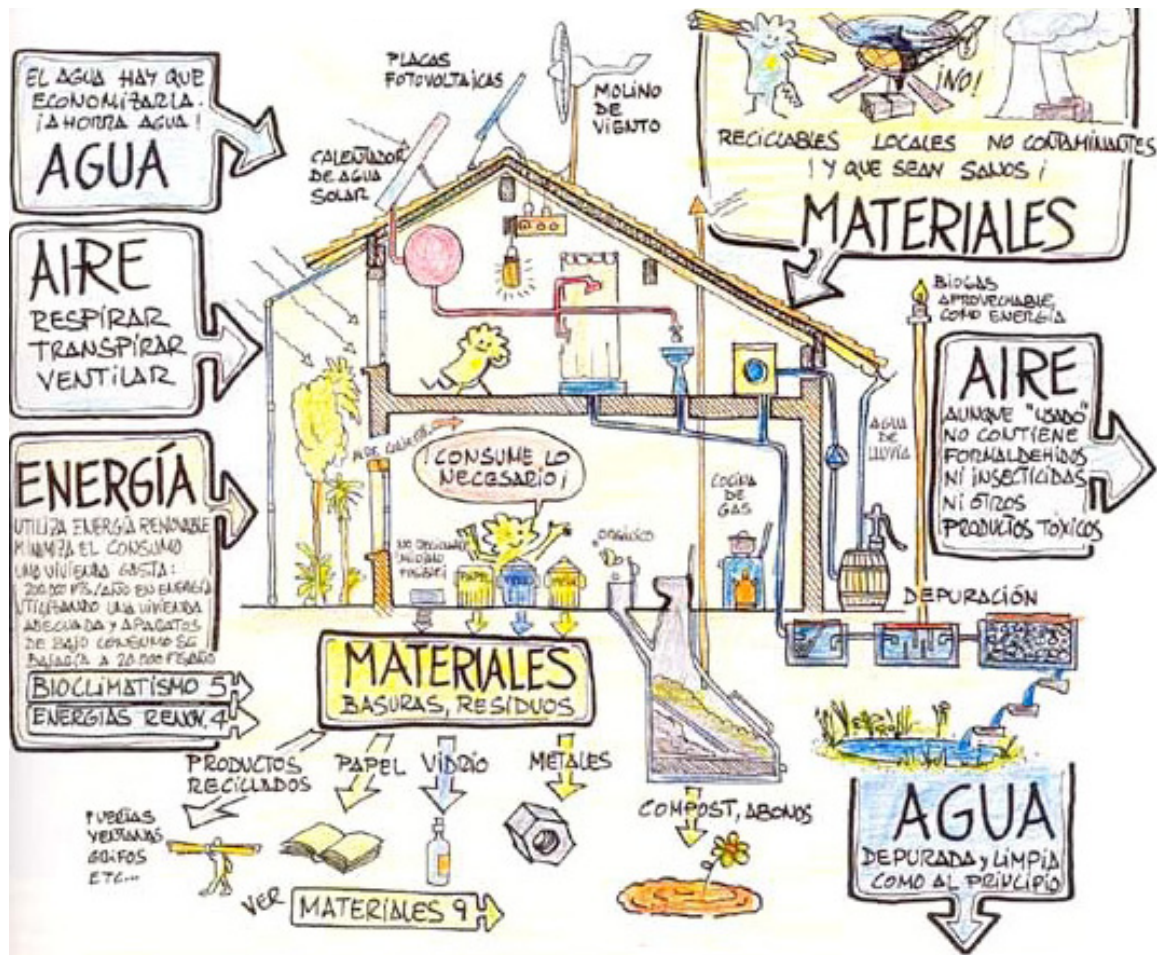 EL AGUA HAY QUE
ECONOMIZARLA.
¡AHORRA AGUA!
AGUA
AIRE
RESPIRAR
TRANSPIRAR
VENTILAR
ENERGÍA
UTILIZA ENERGÍA RENOVABLE
MINIMIZA EL CONSUMO
UNA VIVIENDA GASTA:
200.000 PTS/AÑO EN ENERGÍA
UTILIZANDO UNA VIVIENDA
ADECUADA Y APARATOS
DE BAJO CONSUMO SE
BAJARÍA A 20.000 PTS/AÑO
BIOCLIMATISMO 5
ENERGÍAS RENOV. 4
PLACAS
FOTOVOLTAICAS
CALENTADOR
DE AGUA
SOLAR
MOLINO
DE
VIENTO
¡NO!
RECICLABLES LOCALES NO CONTAMINANTES
! Y QUE SEAN SANOS ¡
MATERIALES
BIOGAS
APROVECHABLE
COMO ENERGÍA
AIRE
AUNQUE "USADO"
NO CONTIENE
FORMALDEHIDOS
NI INSECTICIDAS
NI OTROS
PRODUCTOS TÓXICOS
AGUA
DE
LLUVIA
AIRE CALIENTE
¡CONSUME LO
NECESARIO¡
COCINA
DE
GAS
ORGÁNICO
NO RECICLABLE
MÍNIMO
POSIBLE!
PAPEL
METAL
DEPURACIÓN
MATERIALES
BASURAS, RESIDUOS
PRODUCTOS
RECICLADOS
PAPEL
VIDRIO
METALES
PUERTAS
VENTANAS
GRIFOS
ETC...
COMPOST, ABONOS
VER
MATERIALES 9
AGUA
DEPURADA y LIMPIA
COMO AL PRINCIPIO